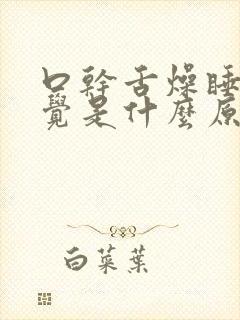 口幹舌燥睡
覺是什麼原
白菜葉